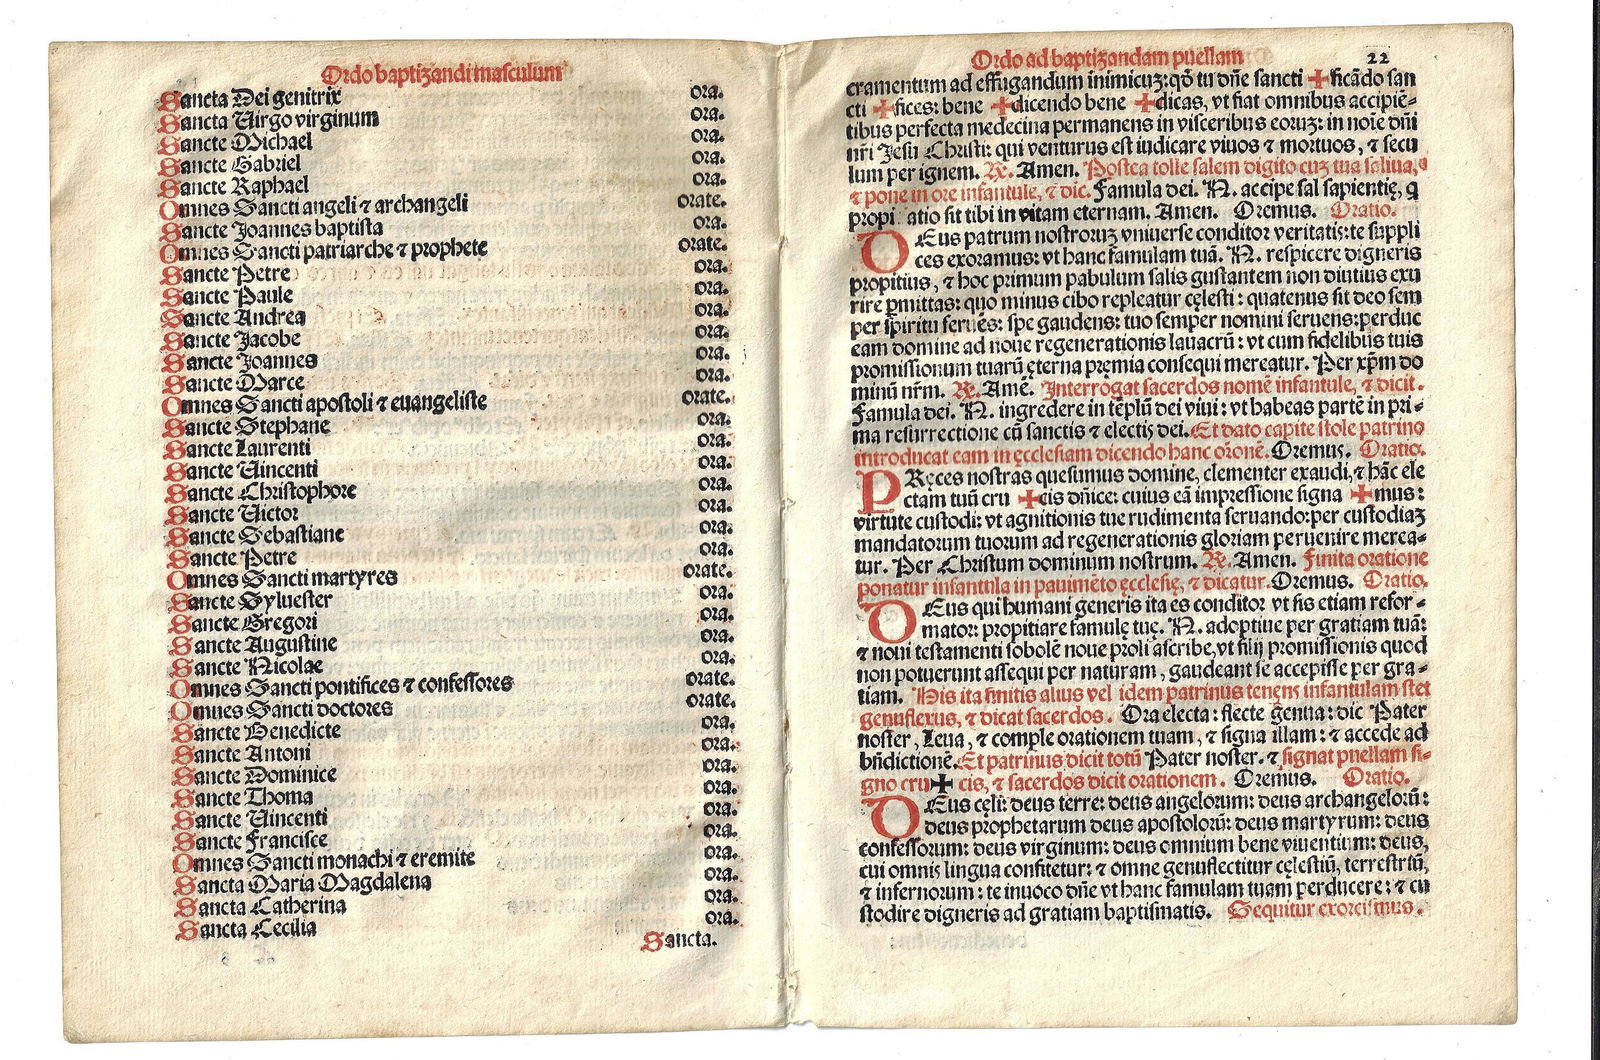 Ordo baptizandi masculum
Sancta Dei genitrix ora.
Sancta Uirgo virginum ora.
Sancte Michael ora.
Sancte Gabriel ora.
Sancte Raphael ora.
Omnes Sancti angeli ⁊ archangeli orate.
Sancte Joannes baptista ora.
Omnes Sancti patriarche ⁊ prophete orate.
Sancte Petre ora.
Sancte Paule ora.
Sancte Andrea ora.
Sancte Jacobe ora.
Sancte Joannes ora.
Sancte Marce ora.
Omnes Sancti apostoli ⁊ euangeliste orate.
Sancte Stephane ora.
Sancte Laurenti ora.
Sancte Uincenti ora.
Sancte Christophore ora.
Sancte Uictor ora.
Sancte Sebastiane ora.
Sancte Petre ora.
Omnes Sancti martyres orate.
Sancte Syluester ora.
Sancte Gregori ora.
Sancte Augustine ora.
Sancte Nicolae ora.
Omnes Sancti pontifices ⁊ confessores orate.
Omnes Sancti doctores orate.
Sancte Benedicte ora.
Sancte Antoni ora.
Sancte Dominice ora.
Sancte Thoma ora.
Sancte Uincenti ora.
Sancte Francisce ora.
Omnes Sancti monachi ⁊ eremite ora.
Sancta Maria Magdalena ora.
Sancta Catherina ora.
Sancta Cecilia ora.
Sancta.
Ordo ad baptizandam puellam 22
cramentum ad effugandum inimicuꝫ: qđ tu dñe sancti ✠ ficãdo san
cti ✠ fices: bene ✠ dicendo bene ✠ dicas, vt fiat omnibus accipiẽ-
tibus perfecta medecina permanens in visceribus eoruꝫ: in noĩe dñi
nr̃i Jesu Christi: qui venturus est iudicare viuos ⁊ mortuos, ⁊ secu
lum per ignem. ℟. Amen. Postea tolle salem digito cuꝫ tua saliua,
⁊ pone in ore infantule, ⁊ dic. Famula dei. N. accipe sal sapientię, q
propi atio sit tibi in vitam eternam. Amen. Oremus. Oratio.
DEus patrum nostroruꝫ vniuerse conditor veritatis: te suppli
ces exoramus: vt hanc famulam tuã. N. respicere digneris
propitius, ⁊ hoc primum pabulum salis gustantem non diutius exu
rire ꝑmittas: quo minus cibo repleatur cęlesti: quatenus sit deo sem
per spiritu feruẽs: spe gaudens: tuo semper nomini seruens: perduc
eam domine ad noue regenerationis lauacrũ: vt cum fidelibus tuis
promissionum tuarũ ęterna pręmia consequi mereatur. Per xp̃m do
minũ nr̃m. ℟. Amẽ. Interrogat sacerdos nomẽ infantule, ⁊ dicit.
Famula dei. N. ingredere in tẽplũ dei viui: vt habeas partẽ in pri-
ma resurrectione cũ sanctis ⁊ electis dei. Et dato capite stole patrino
introducat eam in ęcclesiam dicendo hanc orõnẽ. Oremus. Oratio.
PRęces nostras quesumus domine, clementer exaudi, ⁊ hãc ele
ctam tuã cru ✠ cis dñice: cuius eã impressione signa ✠ mus:
virtute custodi: vt agnitionis tue rudimenta seruando: per custodiaꝫ
mandatorum tuorum ad regenerationis gloriam peruenire merea-
tur. Per Christum dominum nostrum. ℟. Amen. Finita oratione
ponatur infantula in pauimẽto ęcclesię, ⁊ dicatur. Oremus. Oratio.
DEus qui humani generis ita es conditor vt sis etiam refor-
mator: propitiare famulę tuę. N. adoptiue per gratiam tuã:
⁊ noui testamenti sobolẽ noue proli ascribe, vt filij promissionis quod
non potuerunt assequi per naturam, gaudeant se accepisse per gra-
tiam. His ita finitis alius vel idem patrinus tenẽs infantulam stet
genuflexus, ⁊ dicat sacerdos. Ora electa: flecte gẽnua: dic Pater
noster, Leua, ⁊ comple orationem tuam, ⁊ signa illam: ⁊ accede ad
bñdictionẽ. Et patrinus dicit totũ Pater noster. ⁊ signat puellam si-
gno cru ✠ cis, ⁊ sacerdos dicit orationem. Oremus. Oratio.
DEus cęli: deus terre: deus angelorum: deus archangelorũ:
deus prophetarum deus apostolorũ: deus martyrum: deus
confessorum: deus virginum: deus omnium bene viuentium: deus,
cui omnis lingua confitetur: ⁊ omne genuflectitur cęlestiũ, terrestriũ,
⁊ infernorum: te inuoco dñe vt hanc famulam tuam perducere: ⁊ cu
stodire digneris ad gratiam baptismatis. Sequitur exorcismus.